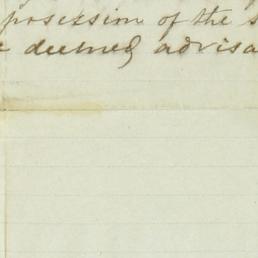 posession of the s
e deemed advisa